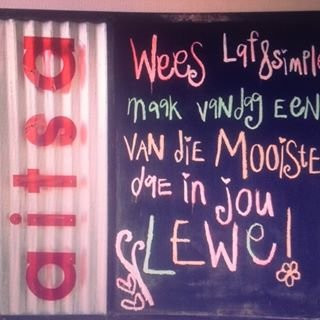 aitsa
Wees Lafgsimpel
maak vandag een
van die Mooiste
dae in jou
Lewe!